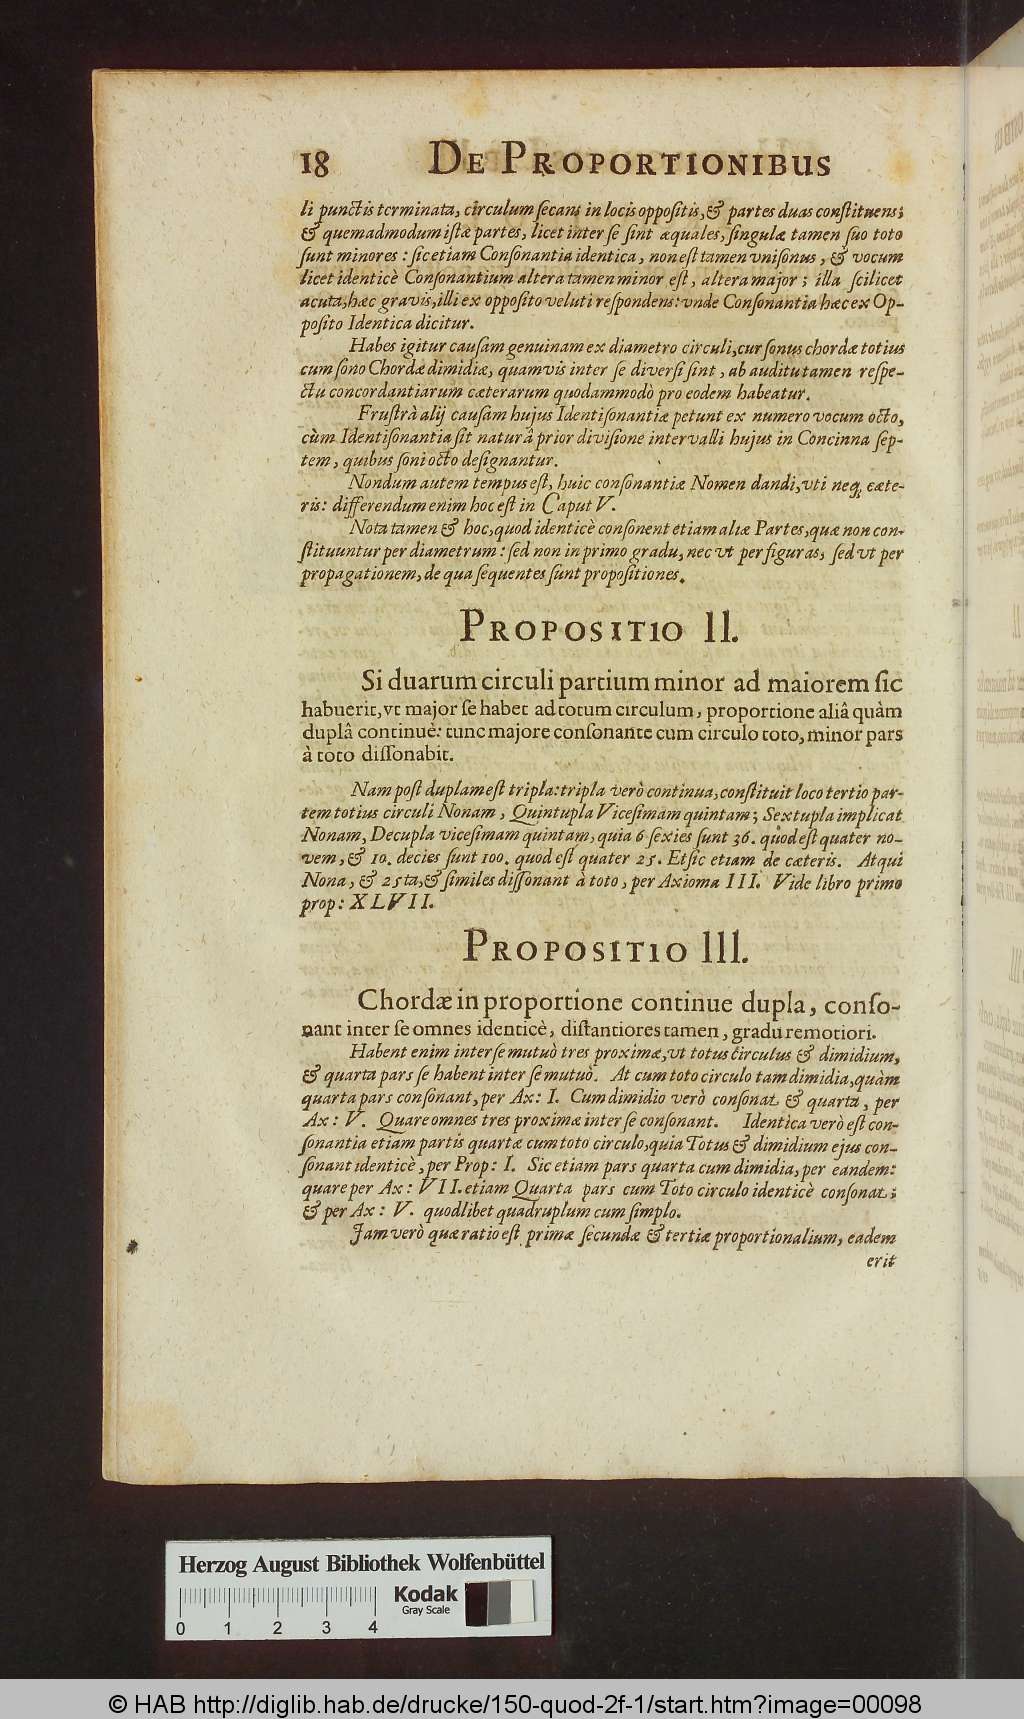 18 DE PROPORTIONIBUS
li punctis terminata, circulum secans in locis oppositis, & partes duas constituens;
& quemadmodum istæ partes, licet inter se sint æquales, singulæ tamen suo toto
sunt minores: sic etiam Consonantia identica, non est tamen vnisonus, & vocum
licet identicè Consonantium altera tamen minor est, altera major; illa scilicet
acuta, hæc gravis, illi ex opposito veluti respondens: vnde Consonantia hæc ex Op-
posito Identica dicitur.
Habes igitur causam genuinam ex diametro circuli, cur sonus chordæ totius
cum sono Chordæ dimidiæ, quamvis inter se diversi sint, ab auditu tamen respe-
ctu concordantiarum cæterarum quodammodò pro eodem habeatur.
Frustrà alij causam hujus Identisonantiæ petunt ex numero vocum octo,
cùm Identisonantia sit naturâ prior divisione intervalli hujus in Concinna sep-
tem, quibus soni octo designantur.
Nondum autem tempus est, huic consonantiæ Nomen dandi, vti neq; cæte-
ris: differendum enim hoc est in Caput V.
Nota tamen & hoc, quod identicè consonent etiam aliæ Partes, quæ non con-
stituuntur per diametrum: sed non in primo gradu, nec vt per figuras, sed vt per
propagationem, de qua sequentes sunt propositiones.
PROPOSITIO II.
Si duarum circuli partium minor ad maiorem sic
habuerit, vt major se habet ad totum circulum, proportione aliâ quàm
duplâ continuè: tunc majore consonante cum circulo toto, minor pars
à toto dissonabit.
Nam post duplam est tripla: tripla verò continua, constituit loco tertio par-
tem totius circuli Nonam, Quintupla Vicesimam quintam; Sextupla implicat
Nonam, Decupla vicesimam quintam, quia 6 sexies sunt 36. quod est quater no-
vem, & 10. decies sunt 100. quod est quater 25. Et sic etiam de cæteris. Atqui
Nona, & 25ta, & similes dissonant à toto, per Axioma III. Vide libro primo
prop: XLVII.
PROPOSITIO III.
Chordæ in proportione continue dupla, conso-
nant inter se omnes identicè, distantiores tamen, gradu remotiori.
Habent enim inter se mutuò tres proximæ, vt totus circulus & dimidium,
& quarta pars se habent inter se mutuò. At cum toto circulo tam dimidia, quàm
quarta pars consonant, per Ax: I. Cum dimidio verò consonat & quarta, per
Ax: V. Quare omnes tres proximæ inter se consonant. Identica verò est con-
sonantia etiam partis quartæ cum toto circulo, quia Totus & dimidium ejus con-
sonant identicè, per Prop: I. Sic etiam pars quarta cum dimidia, per eandem:
quare per Ax: VII. etiam Quarta pars cum Toto circulo identicè consonat;
& per Ax: V. quodlibet quadruplum cum simplo.
Jam verò quæ ratio est primæ secundæ & tertiæ proportionalium, eadem
erit
Herzog August Bibliothek Wolfenbüttel
Kodak
Gray Scale
0 1 2 3 4
© HAB http://diglib.hab.de/drucke/150-quod-2f-1/start.htm?image=00098